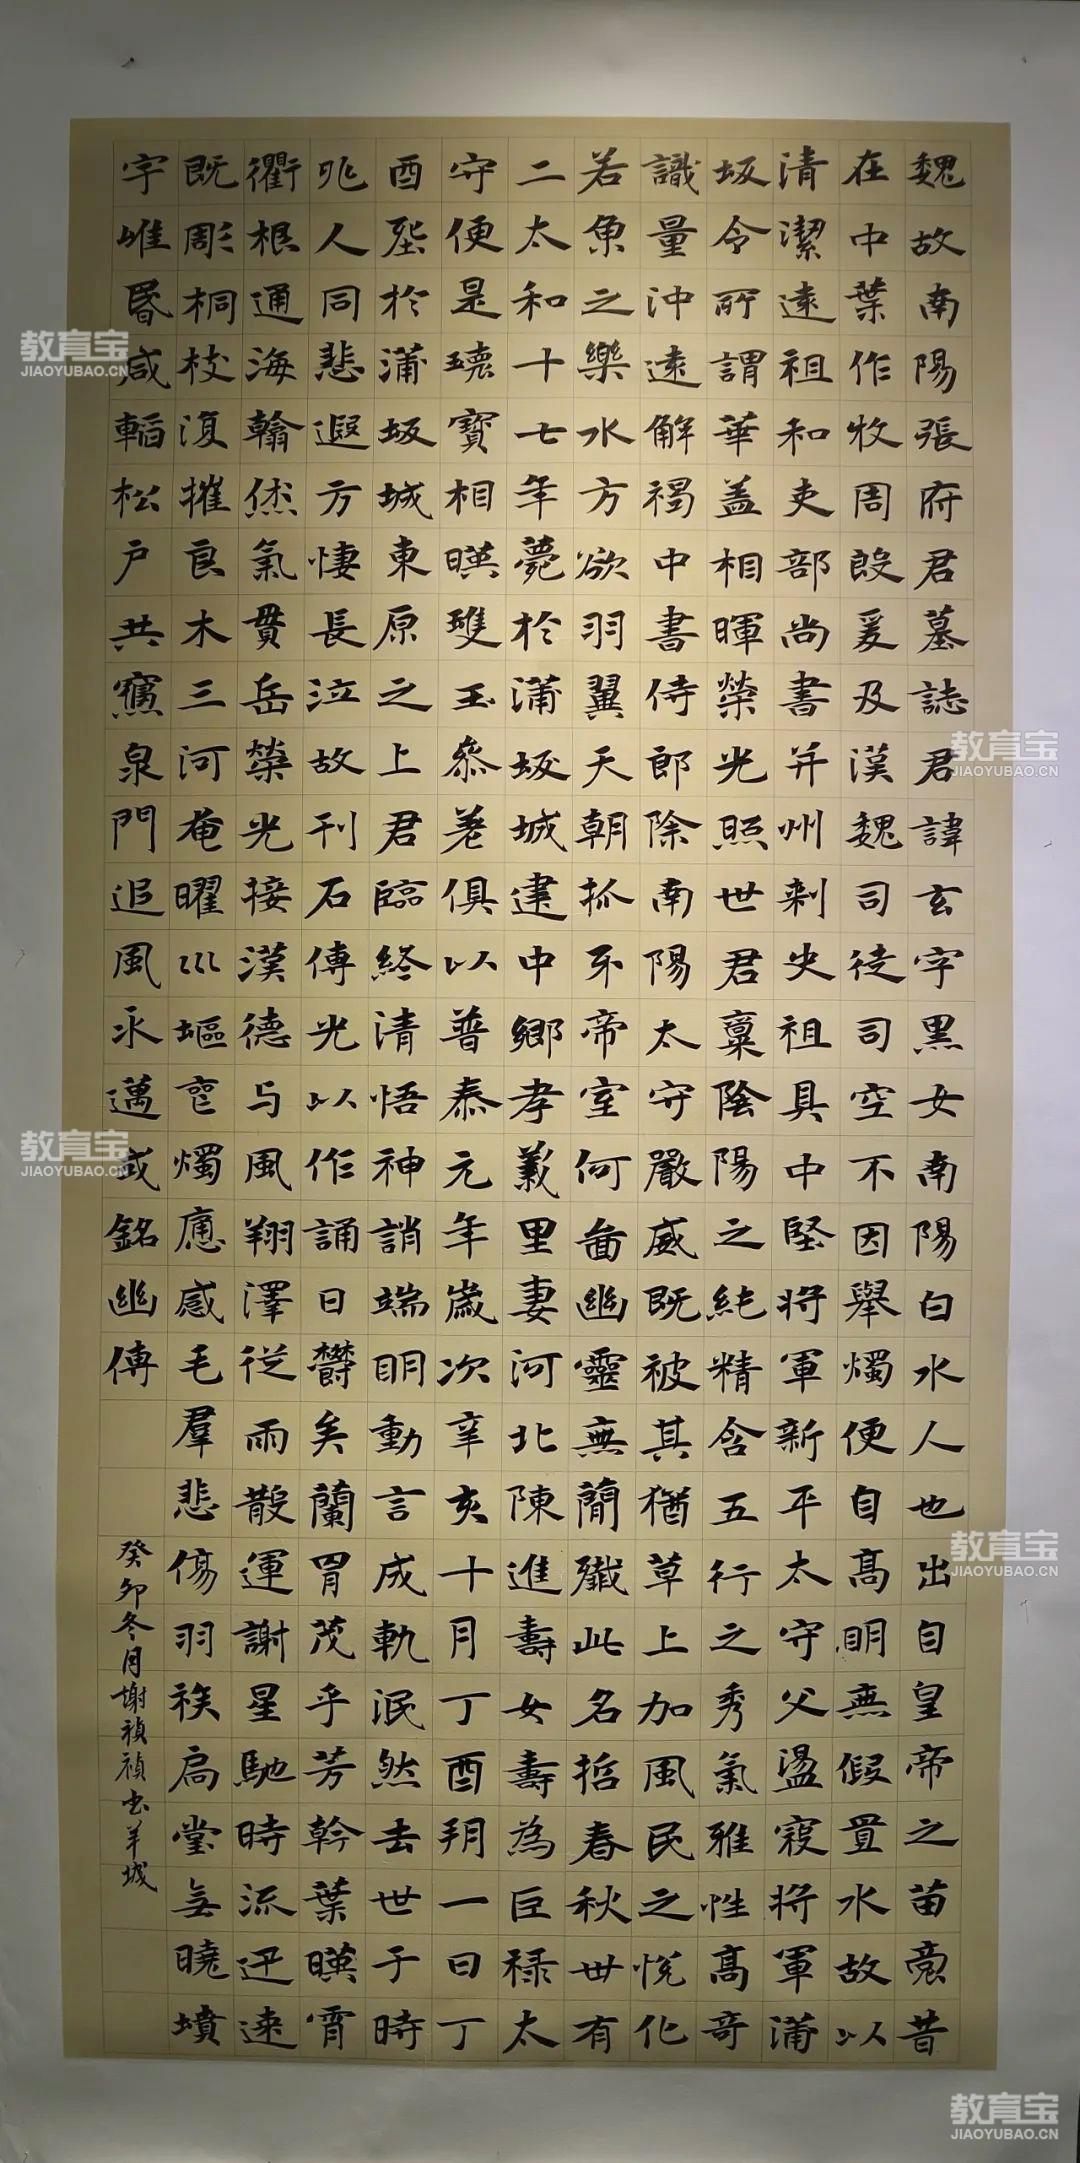 魏故南陽張府君墓誌君諱玄字黑女南陽白水人也出自皇帝之苗裔昔
在中葉作牧周殷爰及漢魏司徒司空不因舉燭便自高明無假置水故以
清潔遠祖和吏部尚書并州刺史祖具中堅將軍新平太守父盪寇將軍蒲
坂令所謂華蓋相暉榮光照世君稟陰陽之純精含五行之秀氣雅性高奇
識量沖遠解褐中書侍郎除南陽太守嚴威既被其猶草上加風民之悅化
若魚之樂水方欲羽翼天朝抓牙帝室何啚幽靈無簡殲此名哲春秋卅有
二太和十七年薨於蒲坂城建中鄉孝義里妻河北陳進壽女壽為巨祿太
守便是瓌寶相暎瓊玉參差俱以普泰元年歲次辛亥十月丁酉朔一日丁
酉塟於蒲坂城東原之上君臨終清悟神誚端明動言成軌泯然去世于時
兆人同悲遐方悽長泣故刊石傳光以作誦曰欝矣蘭胄茂乎芳幹葉暎霄
衢根通海翰傑氣貫岳榮光接漢德与風翔澤從雨散運謝星馳時流迅速
既彫桐枝復摧良木三河奄曜巛塸寢燭應感毛羣悲傷羽族扃堂無曉墳
宇唯昏咸韜松戶共寤泉門追風永邁式銘幽傳
癸卯冬月謝禎禎書羊城
教育宝
JIAOYUBAO.CN
教育宝
JIAOYUBAO.CN
教育宝
JIAOYUBAO.CN
教育宝
JIAOYUBAO.CN
教育宝
JIAOYUBAO.CN